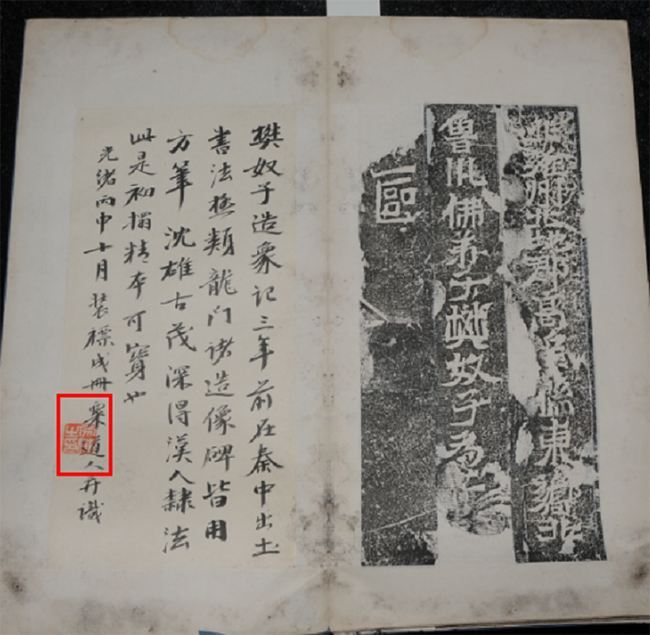 雍州北地郡高縣東鄉北
魯川佛弟子樊奴子為
區
樊奴子造象記三年前在秦中出土
書法極類龍門諸造像碑皆用
方筆沈雄古茂深得漢人隸法
此是初搨精本可寶也
光緒丙申十月裝標成冊道人并識